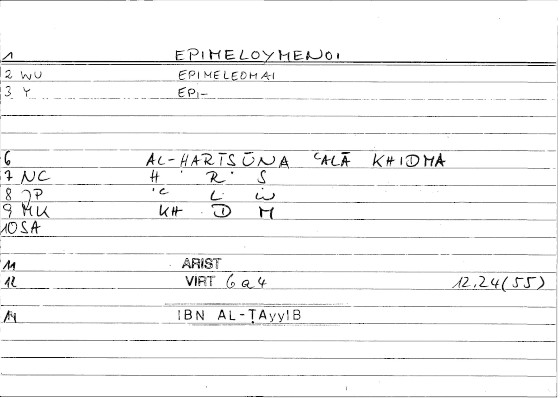 1 EPIMELOYMENOI
2 WU EPIMELEOMAI
3 Y EPI-
6 AL-HARĪSŪNA ʿALĀ KHIDMA
7 NC H R S
8 JP ʿ L W
9 MK KH D M
10 SA
11 ARIST
12 VIRT 6 a 4 12.24(55)
14 IBN AL-ṬAyyIB